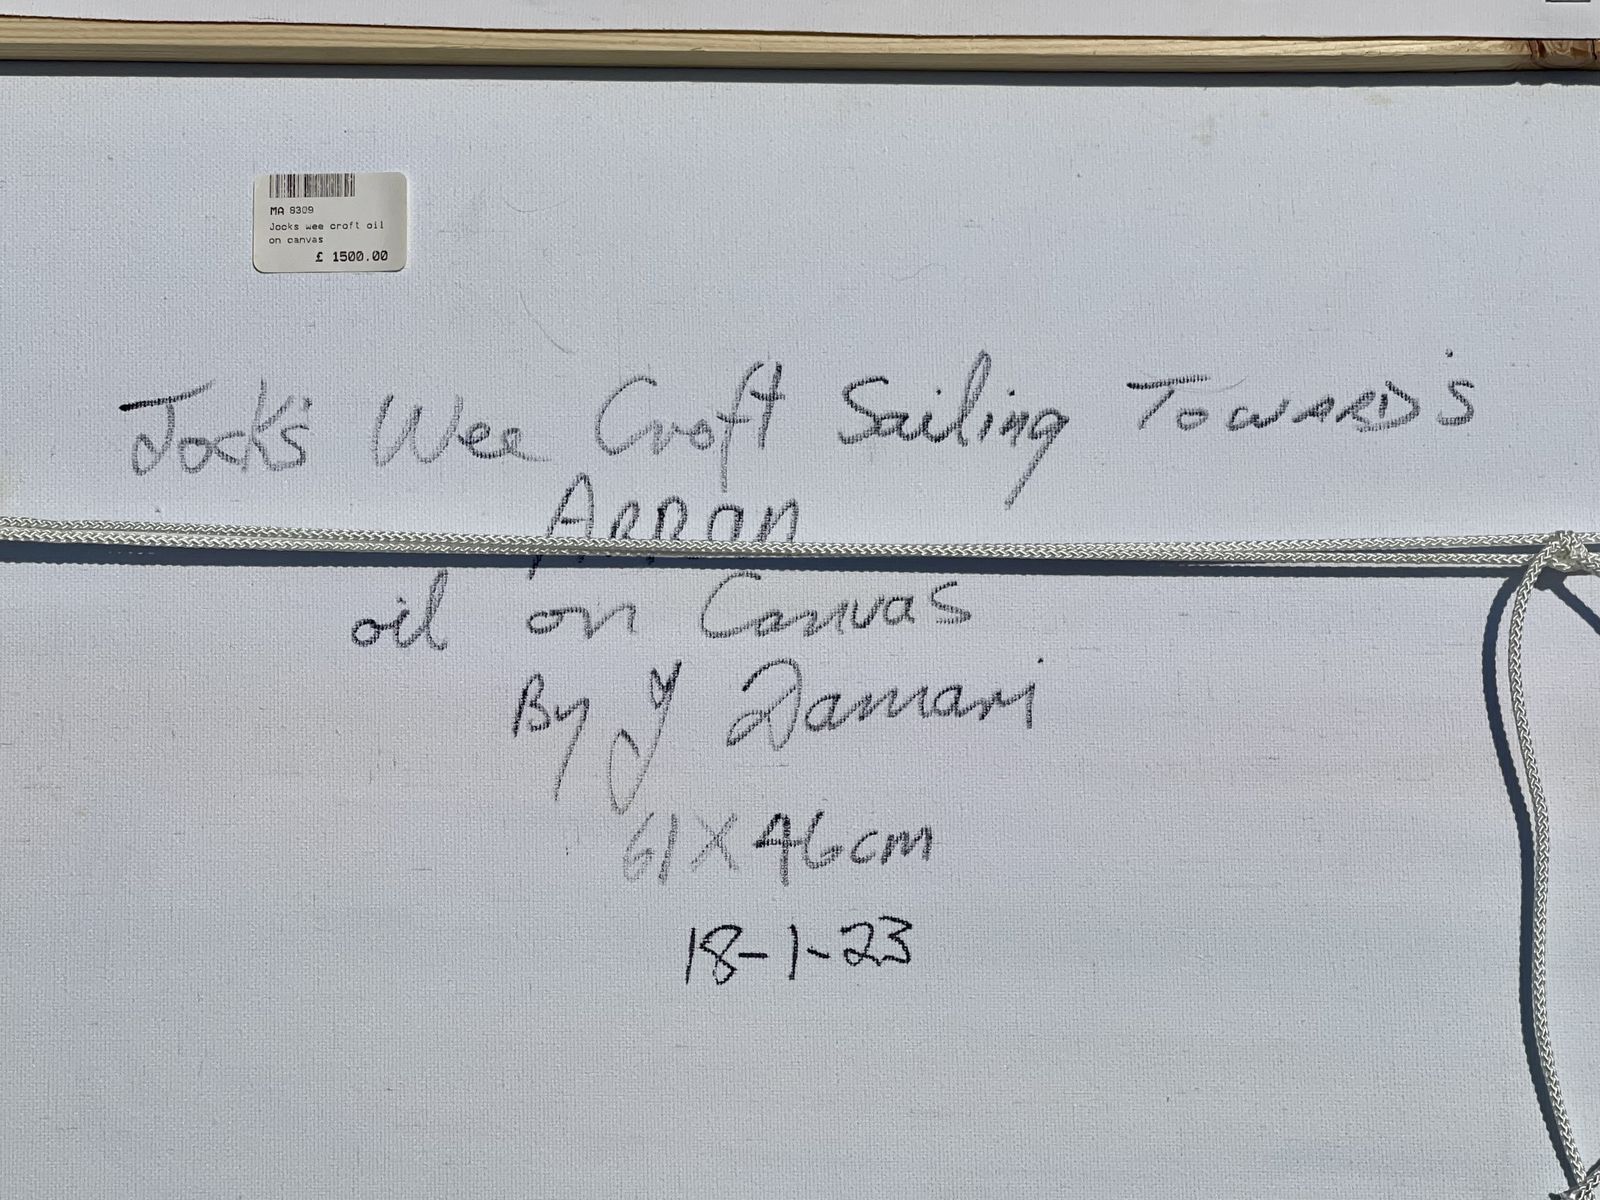 MA 6309
Jocks wee croft oil
on canvas
£ 1500.00
Jock's Wee Croft Sailing Toward's
Arran
oil on Canvas
By J Jamani
61 X 46cm
18-1-23